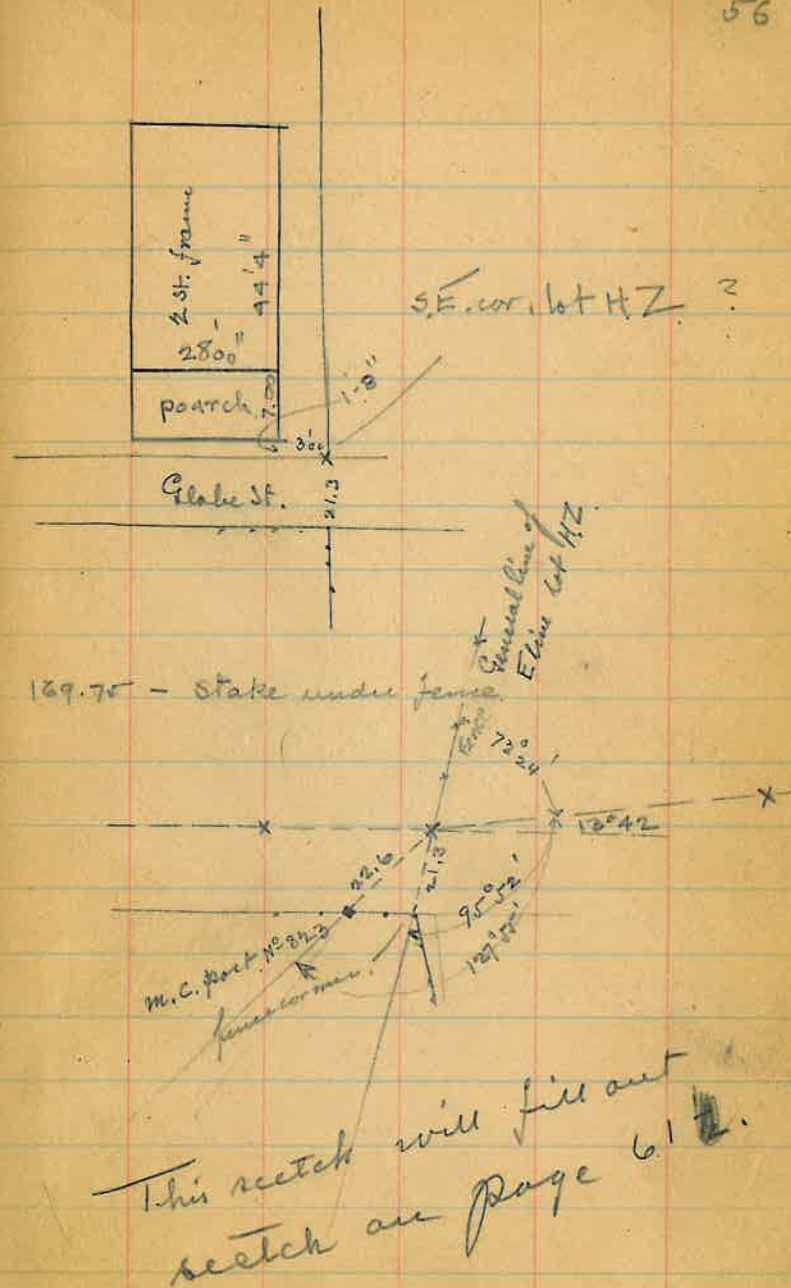 56
2 St. frame
44'4"
28'00"
poarch 7.00
1'-8"
3'00
S.E. cor. lot H.Z. ?
Globe St.
21.3
General line of
E line lot HZ.
169.75 - Stake under fence.
Fence
72° 24'
13°42
22.6
21.3
95°52'
127°55'
m.c. post No 823
fence corner.
This scetch will fill out
scetch on page 61